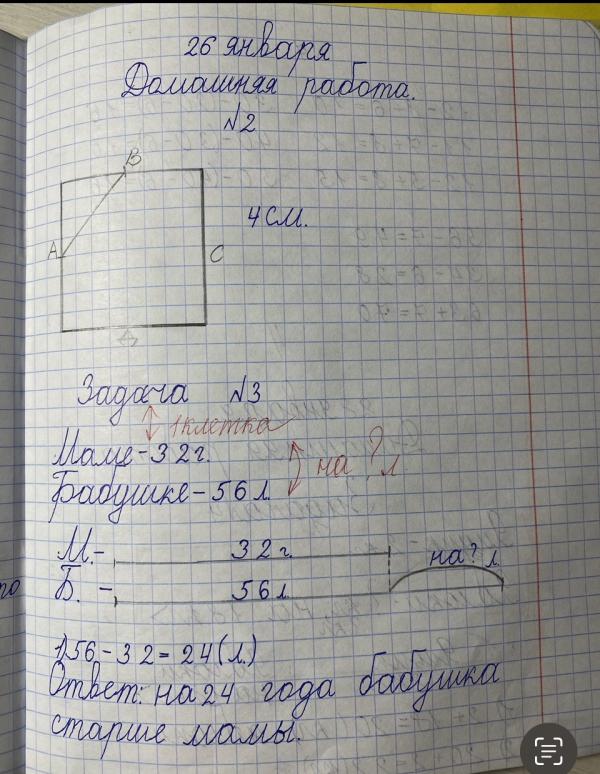 26 января
Домашняя работа.
№2
В
4 см.
А
С
Д
Задача №3
1 клетка
Маме - 32 г.
на ? л
Бабушке - 56 л.
М. - 32 г.
на ? л.
Б. - 56 л
1) 56 - 32 = 24 (л.)
Ответ: на 24 года бабушка
старше мамы.